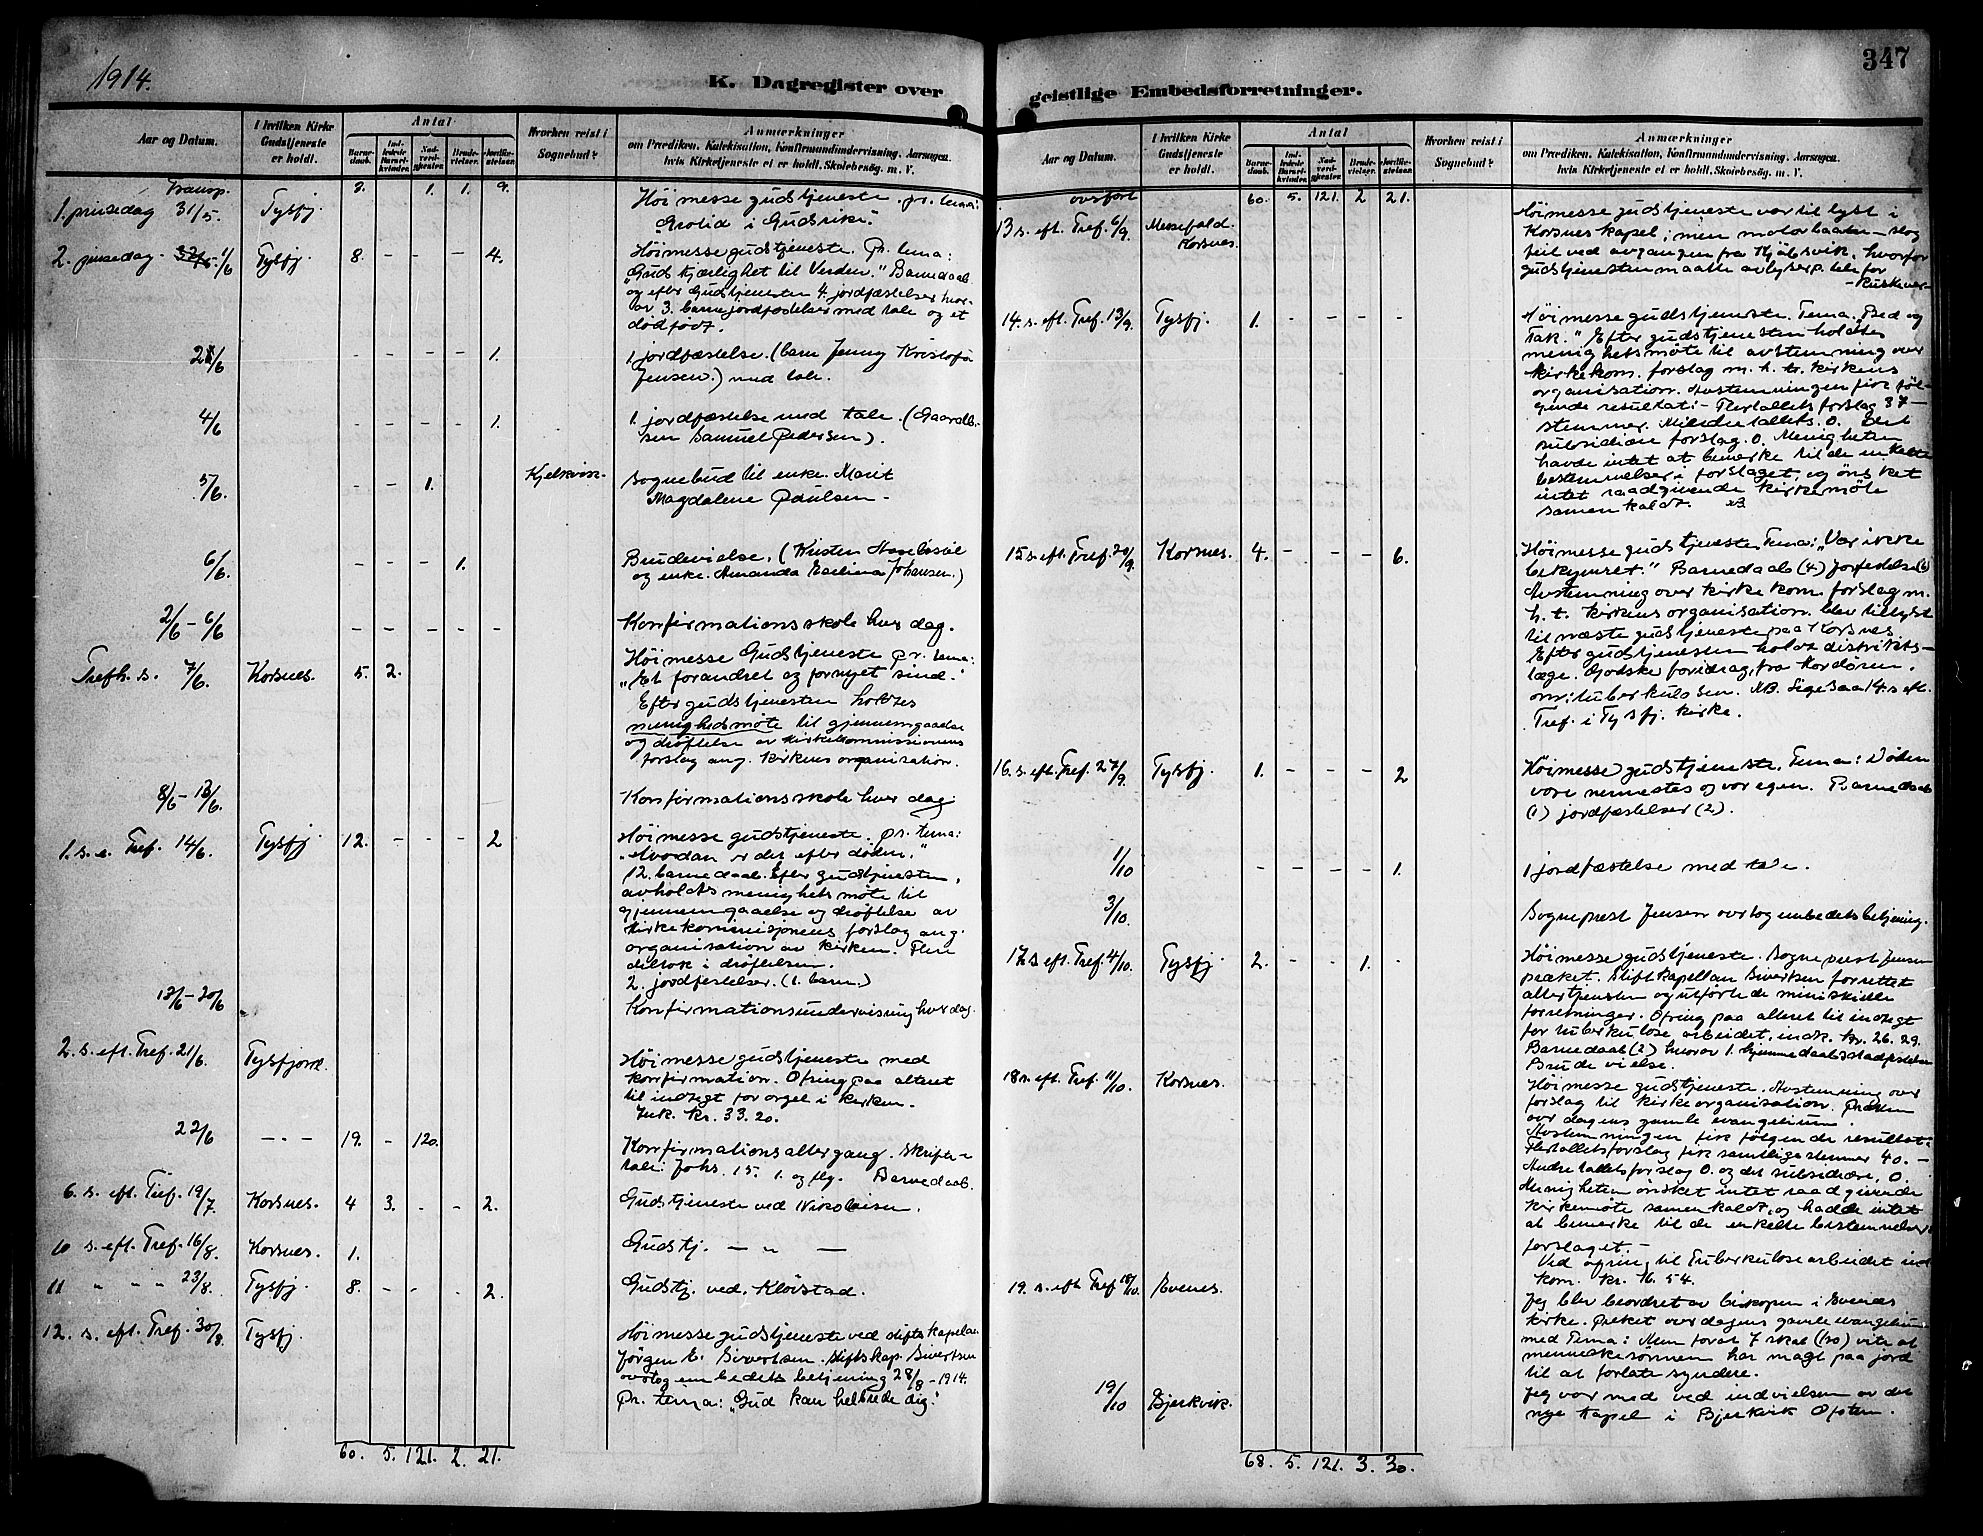 1914.
K. Dagregister over
Aar og Datum.
I hvilken Kirke Gudstjeneste er holdt.
Antal
Barne-daab.
Ind-ledede Barsel-kvinder.
Nad-verd-gjæster.
Brude-vielser.
Jordfæ-stelser.
Hvorhen reist i Sognebud?
Anmærkninger
om Prædiken, Katekisation, Konfirmandundervisning, Aarsagen,
hvis Kirketjeneste ei er holdt, Skolebesøg m. V.
Transp. 2. 1. 1. 9.
1. pinsedag 31/5. Tysfj.
Høimesse gudstjeneste. pr. tema:
"Grotid i Gudsrike."
2. pinsedag 1/6 Tysfj. 8. - - - 4.
Høimesse gudstjeneste. Pr. tema:
"Guds kjærlighet til Verden." Barnedaab
og efter Gudstjenesten 4. jordfæstelser hvor-
av 3. barnejordfæstelser med tale og et
dødfødt.
2/6 - - - - 1.
1. jordfæstelse. (barn Jenny Kristofa
Jensen.) med tale.
4/6 - - - - 1.
1. jordfæstelse med tale. (Gaardb.
sen Samuel Pedersen).
5/6. - - 1. Sognebud til enke. Marit
Magdalene Paulsen -
6/6. - - - 1.
Brudevielse. (Kristen
og enke. Amanda Johansen.)
2/6 - 6/6 - - - - -
Konfirmationsskole hver dag.
Trefh. s. 7/6. Korsnes. 5. 2.
Høimesse Gudstjeneste pr. tema:
"Et forandret og fornyet sind."
Efter gudstjenesten holdtes
menighedsmøte til gjennemgaaelse
og drøftelse av Kirkekommissionens
forslag ang. kirkens organisation.
8/6 - 13/6.
Konfirmationsskole hver dag.
1. s. e. Tref. 14/6. Tysfj. 12. - - - 2
Høimesse gudstjeneste. pr. tema:
"Hvordan er det efter døden."
12. barnedaab. Efter gudstjenesten,
avholdts menighetsmøte til
gjennemgaaelse og drøftelse av
kirkekommisjonens forslag ang.
organisation av kirken. Flere
deltok i drøftelsen.
2. jordfestelser. (1. barn.)
13/6 - 20/6
Konfirmationsundervisning hver dag.
2. s. eft. Tref. 21/6. Tysfjord.
Høimesse gudstjeneste med
konfirmation. Ofring paa alteret
til indtægt for orgel i kirken.
Ink. kr. 33.20.
22/6 - " - 19. - 120.
Konfirmationsaltergang. Skrifte-
tale: Johs. 15. 1. og flg. Barnedaab.
6. s. eft. Tref. 19/7. Korsnes. 4 3. - - 2.
Gudstjeneste ved Nikolaisen.
10 s. eft. Tref. 16/8. Korsnes. 1.
Gudstj. - " -
11 " " " 23/8. Tysfj. 8. - - 2.
Gudstj. ved. Kløvstad.
12. s. eft. Tref. 30/8. Tysfj.
Høimesse gudstjeneste ved stiftskapelan
Jørgen E. Sivertsen. Stiftskap. Sivertsen
overtog embedets betjening 28/8 - 1914.
Pr. tema: "Gud kan helbrede dig."
60. 5. 121. 2. 21.
347
geistlige Embedsforretninger.
Aar og Datum.
I hvilken Kirke Gudstjeneste er holdt.
Antal
Barne-daab.
Ind-ledede Barsel-kvinder.
Nad-verd-gjæster.
Brude-vielser.
Jordfæ-stelser.
Hvorhen reist i Sognebud?
Anmærkninger
om Prædiken, Katekisation, Konfirmandundervisning, Aarsagen,
hvis Kirketjeneste ei er holdt, Skolebesøg m. V.
ovsført 60. 5. 121. 2 21.
13 s. eft. Tref. 6/9. Messefald. Korsnes.
Høimesse gudstjeneste var tillyst i
Korsnes kapel; men motorbaaten slog
feil ved avgangen fra hvorfor
gudstjenesten maatte avlyses
14. s. eft. Tref. 13/9. Tysfj. 1. - - - -
Høimesse gudstjeneste. Tema. "Bed og
Tak." Efter gudstjenesten holdtes
menighetsmøte til avstemning over
kirkekom. forslag m. h. t. kirkens
organisation. Avstemningen fik føl-
gende resultat: - Flertallets forslag 37 -
stemmer. Mindretallets. 0. Det
subsidiære forslag. 0. Menigheten
havde intet at bemerke til de enkelte
bestemmelser i forslaget, og ønsket
intet raadgivende kirkemøte
samenkaldt.
15 s. eft. Tref. 20/9. Korsnes. 4. - - - 6.
Høimesse gudstjeneste. Tema: "Vær ikke
bekymret." Barnedaab (4.) jorfestelse (6)
Avstemning over kirkekom. forslag m.
h. t. kirkens organisation. blev tillyst
til næste gudstjeneste paa Korsnes.
Efter gudstjenesten holdt distrikts-
læge. Gjødske foredrag, fra Kordøren,
om: tuberkulosen. NB. Lige saa 14. s. eft.
Tref. i Tysfj. kirke.
16. s. eft. Tref. 27/9. Tysfj. 1. - - - 2
Høimesse gudstjeneste. Tema: Døden
vore nermestes og vor egen. Barnedaab
(1) jordfæstelser (2).
1/10 - - - - 1.
1 jordfæstelse med tale.
3/10.
Sogneprest Jensen overtog embedets betjening.
17. s eft. Tref. 4/10. Tysfj. 2. - - 1. -
Høimesse gudstjeneste. Sogneprest Jensen
præket. Stiftskapellan Sivertsen forrettet
altertjenesten og utførte de ministrielle
forretninger. Ofring paa alteret til indtegt
for tuberkulose arbeidet, indk. kr. 26.29.
Barnedaab (2) hvorav 1. hjemmedaabsstadfestelse
Brudevielse.
18 s. eft. Tref. 11/10. Korsnes.
Høimesse gudstjeneste. Avstemning over
forslag til kirkeorganisation. Præken
over dagens gamle evangelium.
Avstemningen fik følgende resultat:
Flertallets forslag fik samtlige stemmer 40. -
Mindretallets forslag 0. og det subsidiære, 0.
Menigheten ønsket intet raadgivende
kirkemøte samenkaldt, og hadde intet
at bemerke til de enkelte bestemmelser i
forslaget. -
Ved ofring til Tuberkulosearbeidet ind
kom. kr. 16.54.
19. s. eft Tref 18/10. Evenes.
Jeg blev beordret av biskopen i Evenes
kirke. Præket over dagens gamle evangelium
med Tema: Men forat I skal (190) vite at
menneskesønnen har magt paa jord
til at forlate syndere.
19/10 Bjerkvik.
Jeg var med ved indvielsen av det
nye kapel i Bjerkvik Ofoten.
68. 5. 121. 3. 30.